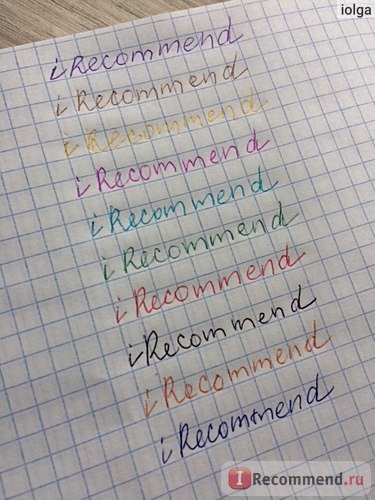 iolga
iRecommend
iRecommend
iRecommend
iRecommend
iRecommend
iRecommend
iRecommend
iRecommend
iRecommend
iRecommend
I Recommend.ru